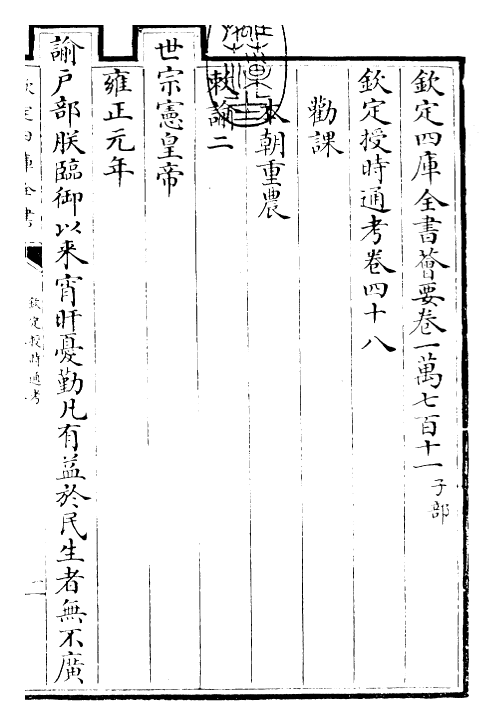 欽定四庫全書薈要卷一萬七百十一子部
欽定授時通考卷四十八
勸課
本朝重農
敕諭二
世宗憲皇帝
雍正元年
諭戶部朕臨御以来宵旰憂勤凡有益於民生者無不廣
欽定四庫全書
欽定授時通考